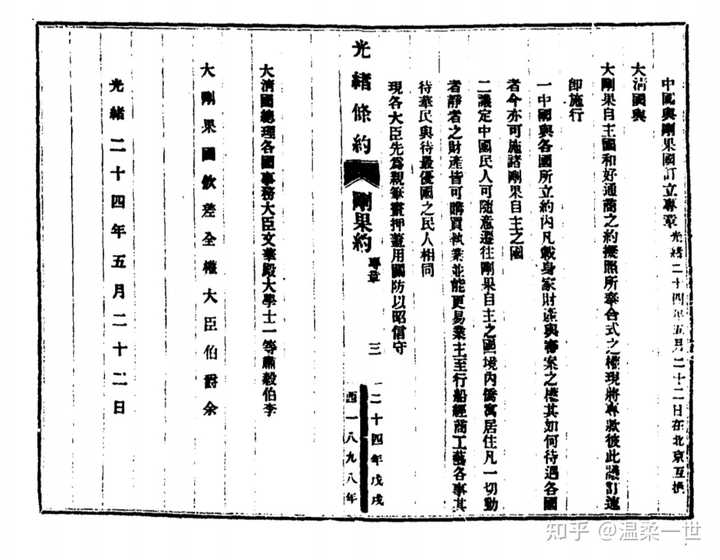 中國與剛果國訂立專章 光緒二十四年五月二十二日在北京互換
大清國與
大剛果自主國和好通商之約擬照所奉合式之權現將專款彼此議訂速
即施行
一中國與各國所立約內凡載身家財產與審案之權其如何待遇各國
者今亦可施諸剛果自主之國
二議定中國民人可隨意遷往剛果自主之國境內僑寓居住凡一切動
者靜者之財產皆可購買執業並能更易業主至行船經商工藝各事其
待華民與待最優國之民人相同
現各大臣先為親筆畫押蓋用關防以昭信守
光緒條約 剛果約 專章 三 二十四年戊戌
西一八九八年
大清國總理各國事務大臣文華殿大學士一等肅毅伯李
大剛果國欽差全權大臣伯爵余
光緒二十四年五月二十二日
知乎 @温柔一世